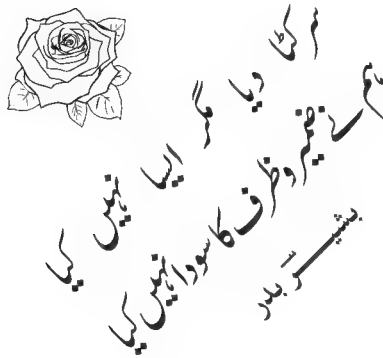 سر کٹا دیا مگر ایسا نہیں کیا
ہم نے ضمیر و ظرف کا سودا نہیں کیا
بشیر بدر